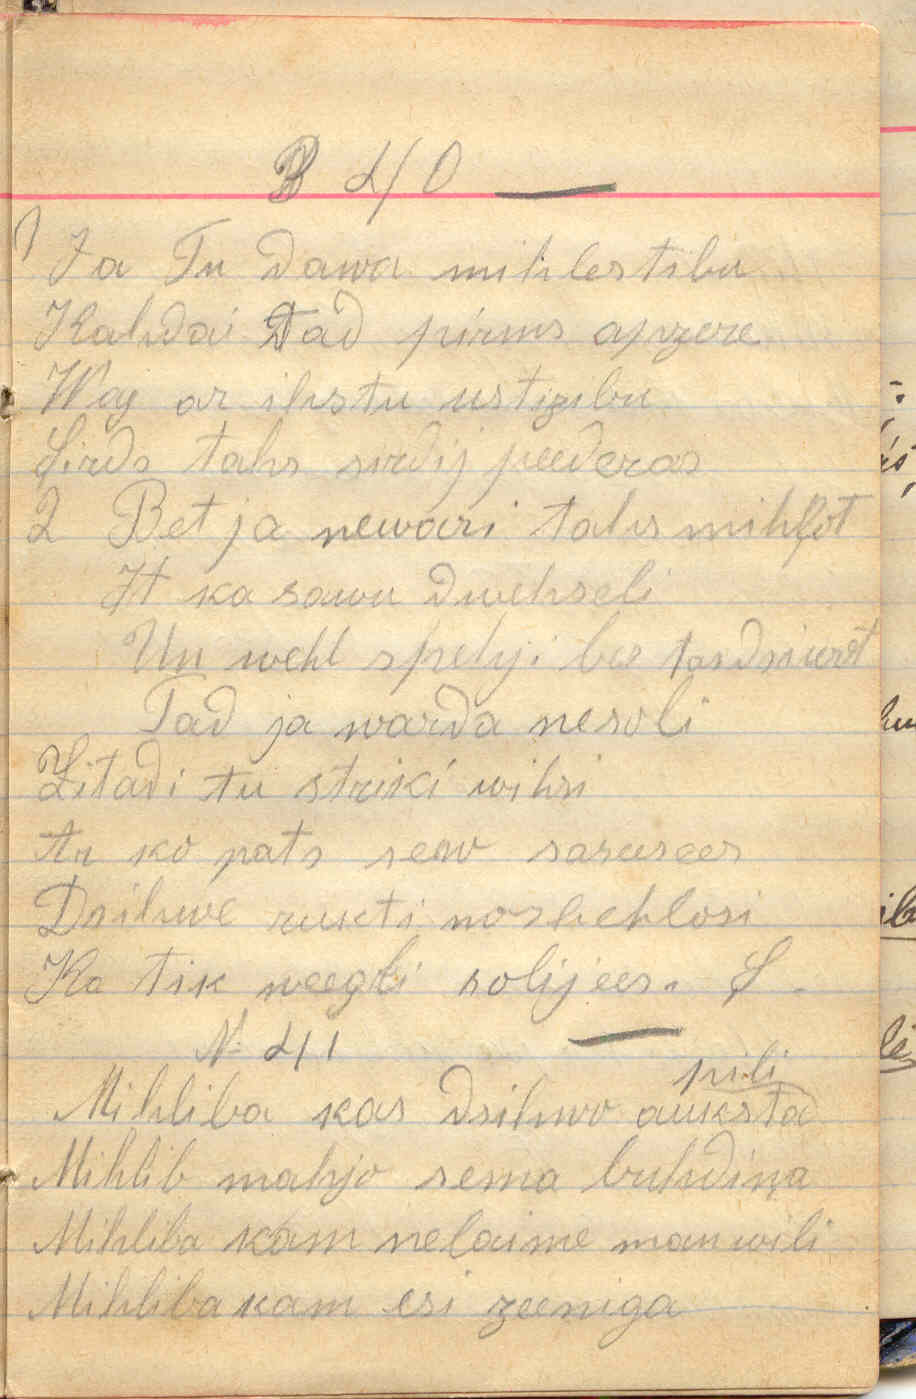 B 40 —
1 Ja Tu dawa mihlestibu
Kahdai Tad pirms apzere
Waj ar ihstu ustizibu
Sirds tahs sirdij peederas
2 Bet ja newari tahs mihlot
It ka sawu dwehseli
Un wehl spehji bes
Tad ja warda nesoli
Litadi tu striki wihsi
Ar ko pats sew saseesees
Dsihwe rukti noschehlosi
Ka tik weegli solijees. S.
N 41
pili
Mihliba kas dsihwo aukstad
Mihlib mahjo sema buhdiņa
Mihliba kam nelaime man wili
Mihliba kam esi zeeniga